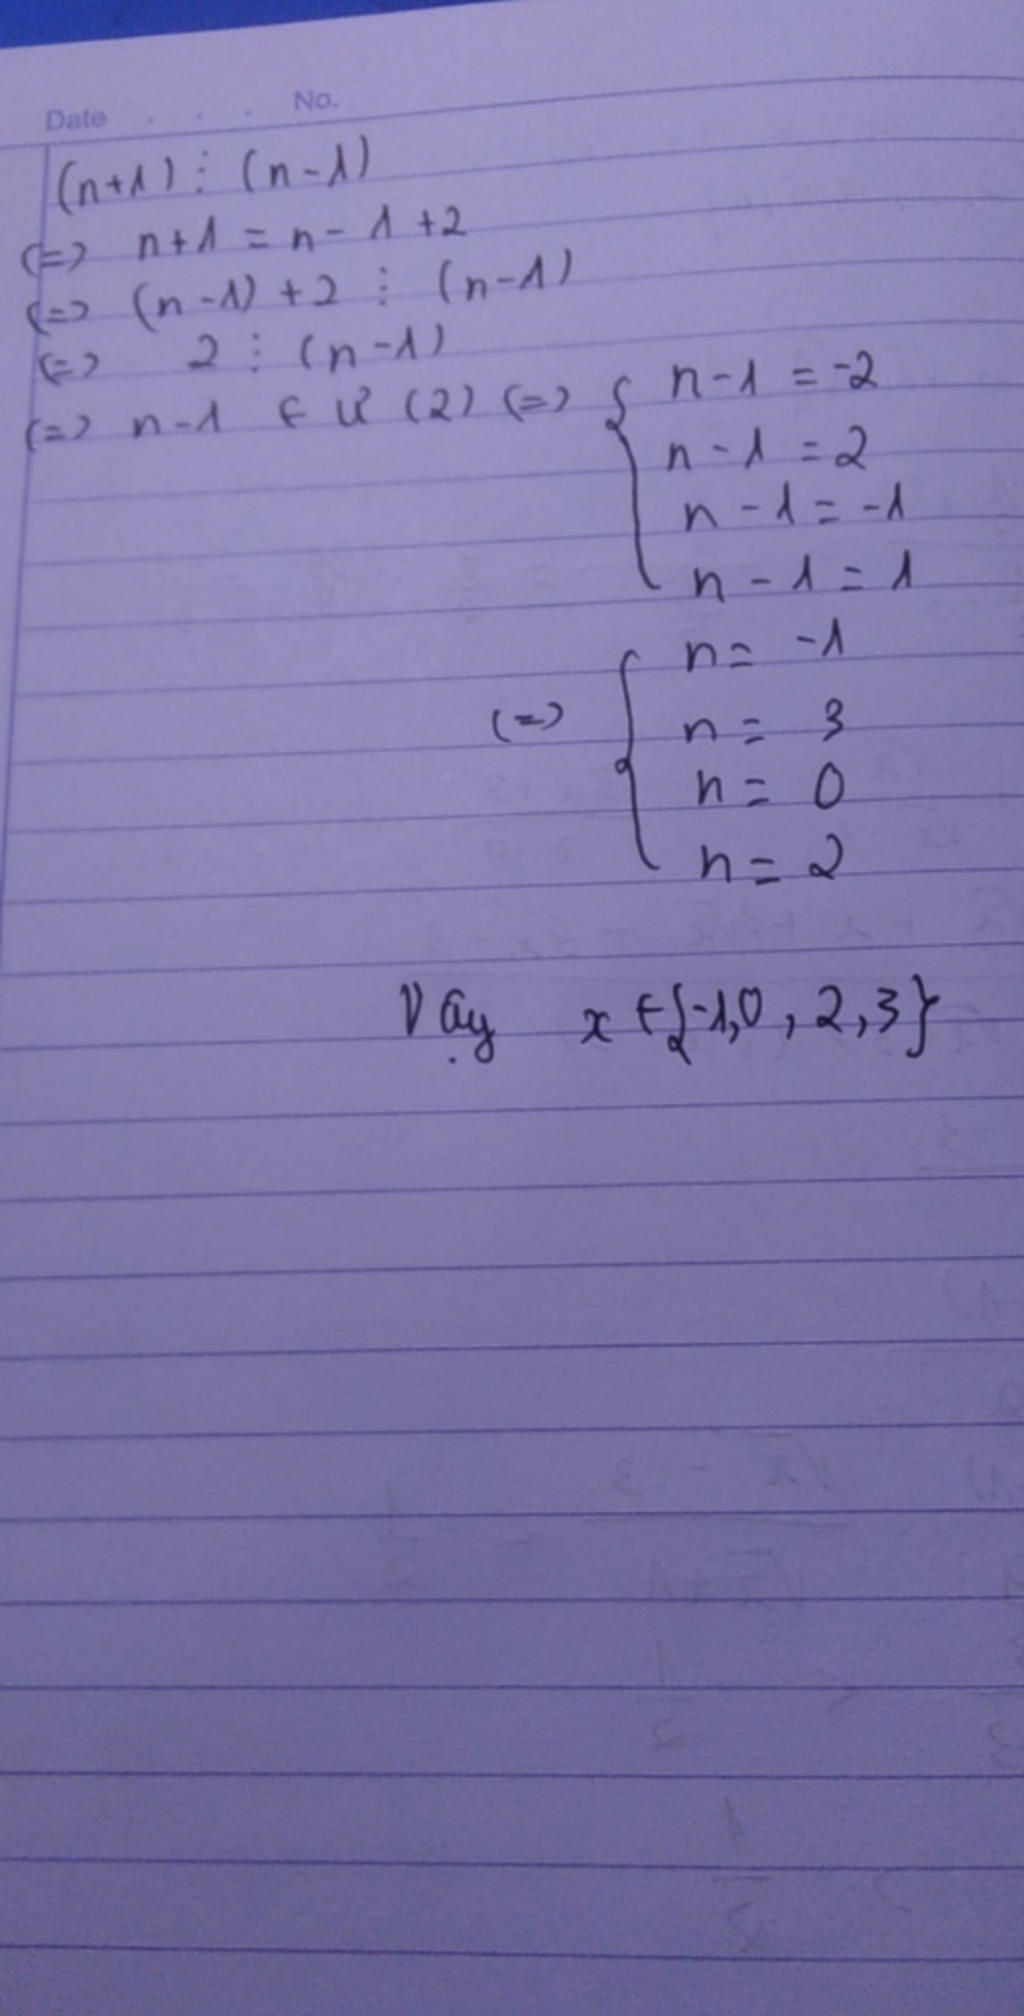 Date . . . No.
(n+1) ⋮ (n-1)
(=) n+1 = n-1+2
(=) (n-1)+2 ⋮ (n-1)
(=) 2 ⋮ (n-1)
(=) n-1 ∈ Ư (2) (=) { n-1 = -2
n-1 = 2
n-1 = -1
n-1 = 1
(=) { n = -1
n = 3
n = 0
n = 2
Vậy x ∈ {-1,0, 2,3}